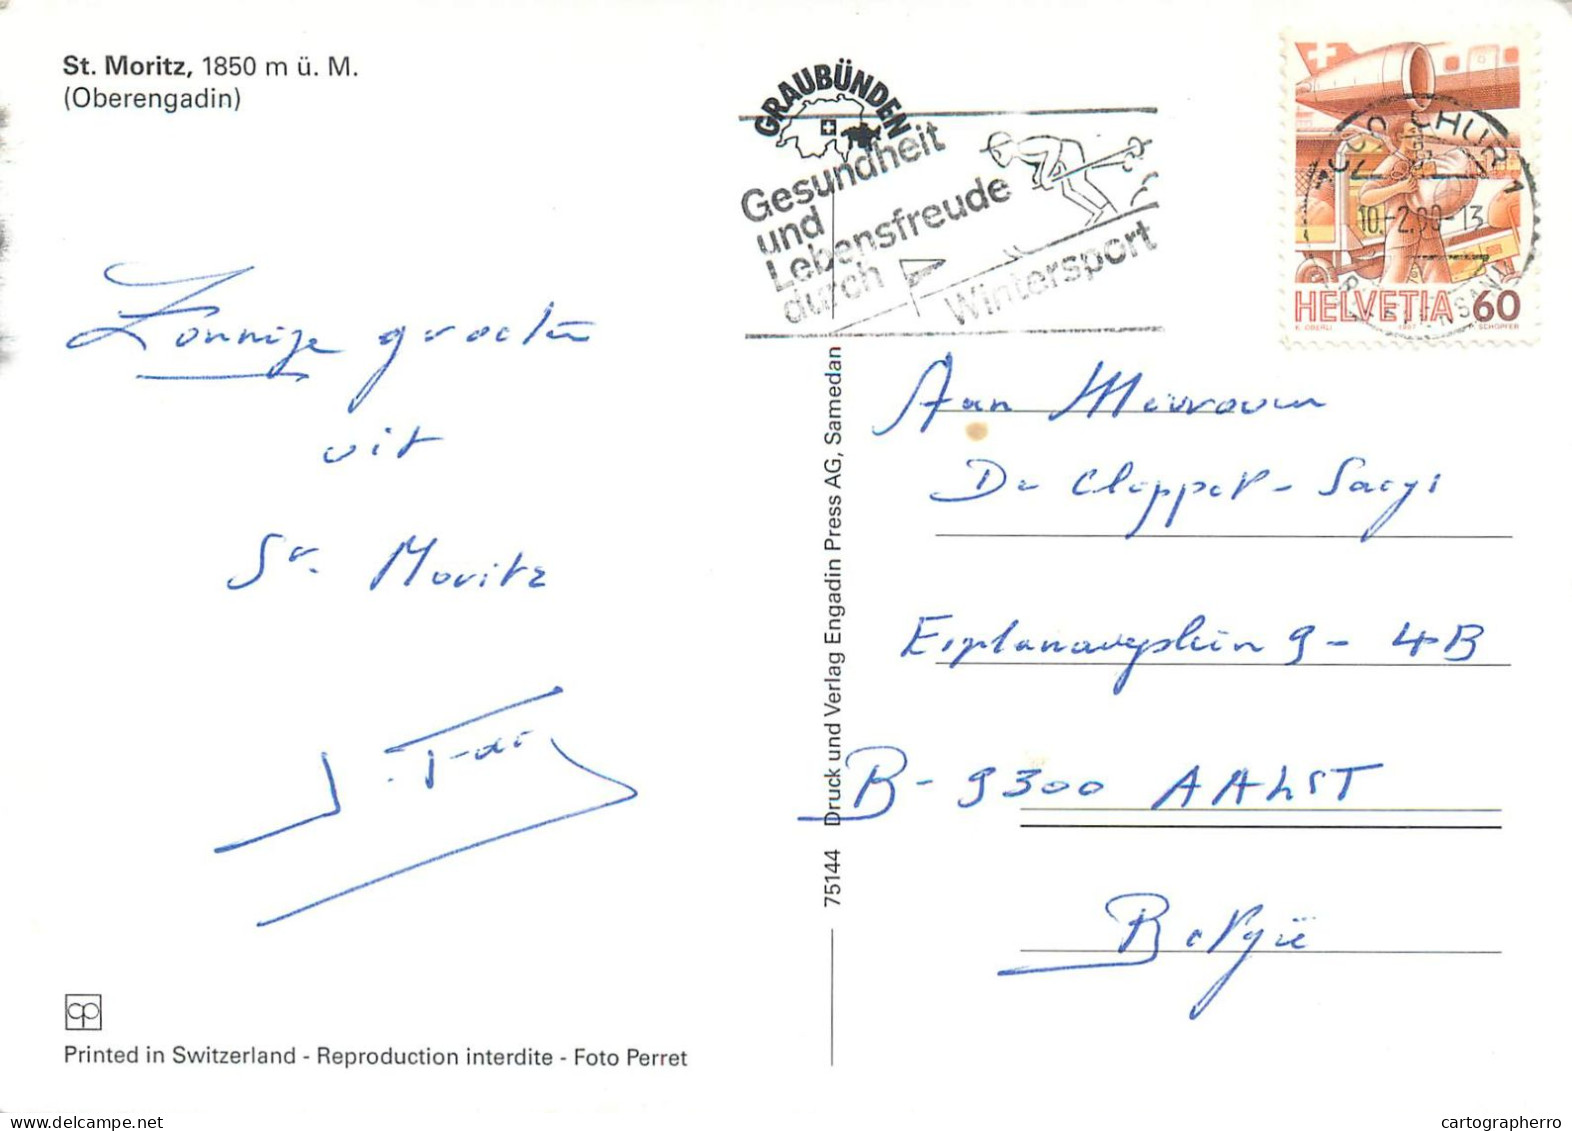 St. Moritz, 1850 m ü. M.
(Oberengadin)
GRAUBÜNDEN
Gesundheit
und
Lebensfreude
durch
Wintersport
CHUR 1
10.-2.90-13
HELVETIA 60
E. OBERLI 1987 P. SCHOPFER
Zonnige groeten
uit
St. Moritz
Aan Mevrouw
De Cleppel - Saeys
Esplanadeplein 9 - 4B
B - 9300 AALST
België
75144 Druck und Verlag Engadin Press AG, Samedan
cp
Printed in Switzerland - Reproduction interdite - Foto Perret
cartographerro